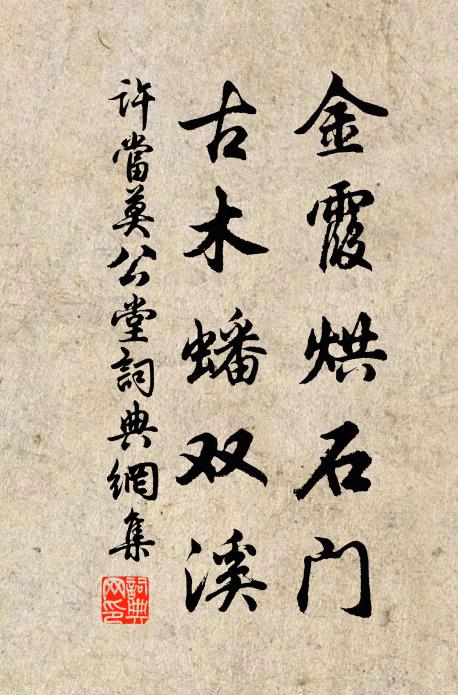 金霞烘石门
古木蟠双溪
許當莫公堂詞典網集
詞典网印